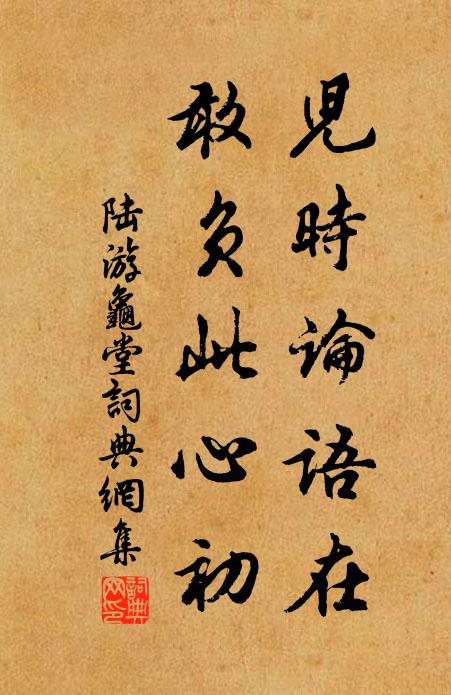 兒時論語在
敢負此心初
陸游龜堂詞典網集
詞典
网印